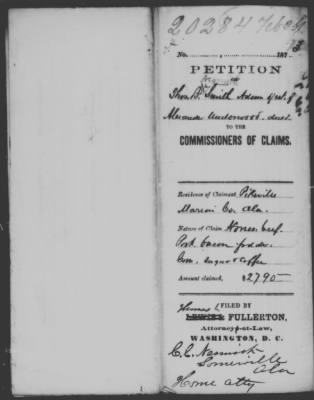 20284
No. , 187
PETITION
Thos. B. Smith Admr of
Alexander Underwood decd.
TO THE
COMMISSIONERS OF CLAIMS.
Residence of Claimant Pikeville
Marion Co. Ala.
Nature of Claim Horses, beef
Pork bacon fodder
Corn, sugar & coffee
Amount claimed, $2795
FILED BY
FULLERTON,
Attorney-at-Law,
WASHINGTON, D. C.
Somerville
Ala
Home atty